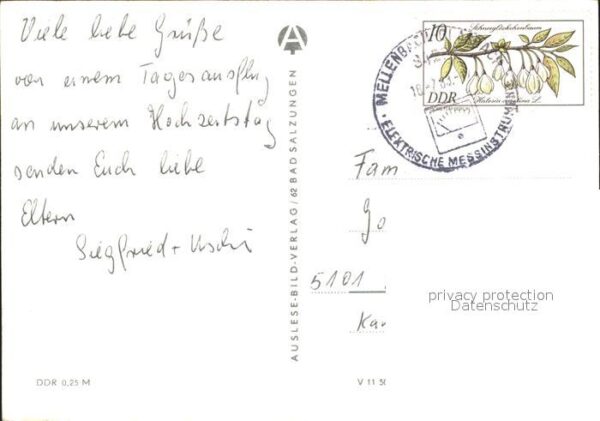 Viele liebe Grüße
von einem Tagesausflug
an unserem Hochzeitstag
senden Euch liebe
Eltern
Siegfried + Uschi
DDR 0,25 M
AUSLESE-BILD-VERLAG / 62 BAD SALZUNGEN
V 11 50
10
Schneeglöckchenbaum
DDR
Halesia carolina L.
MELLENBACH
ELEKTRISCHE MESSINSTRUMENTE
Fam
5101
privacy protection
Datenschutz